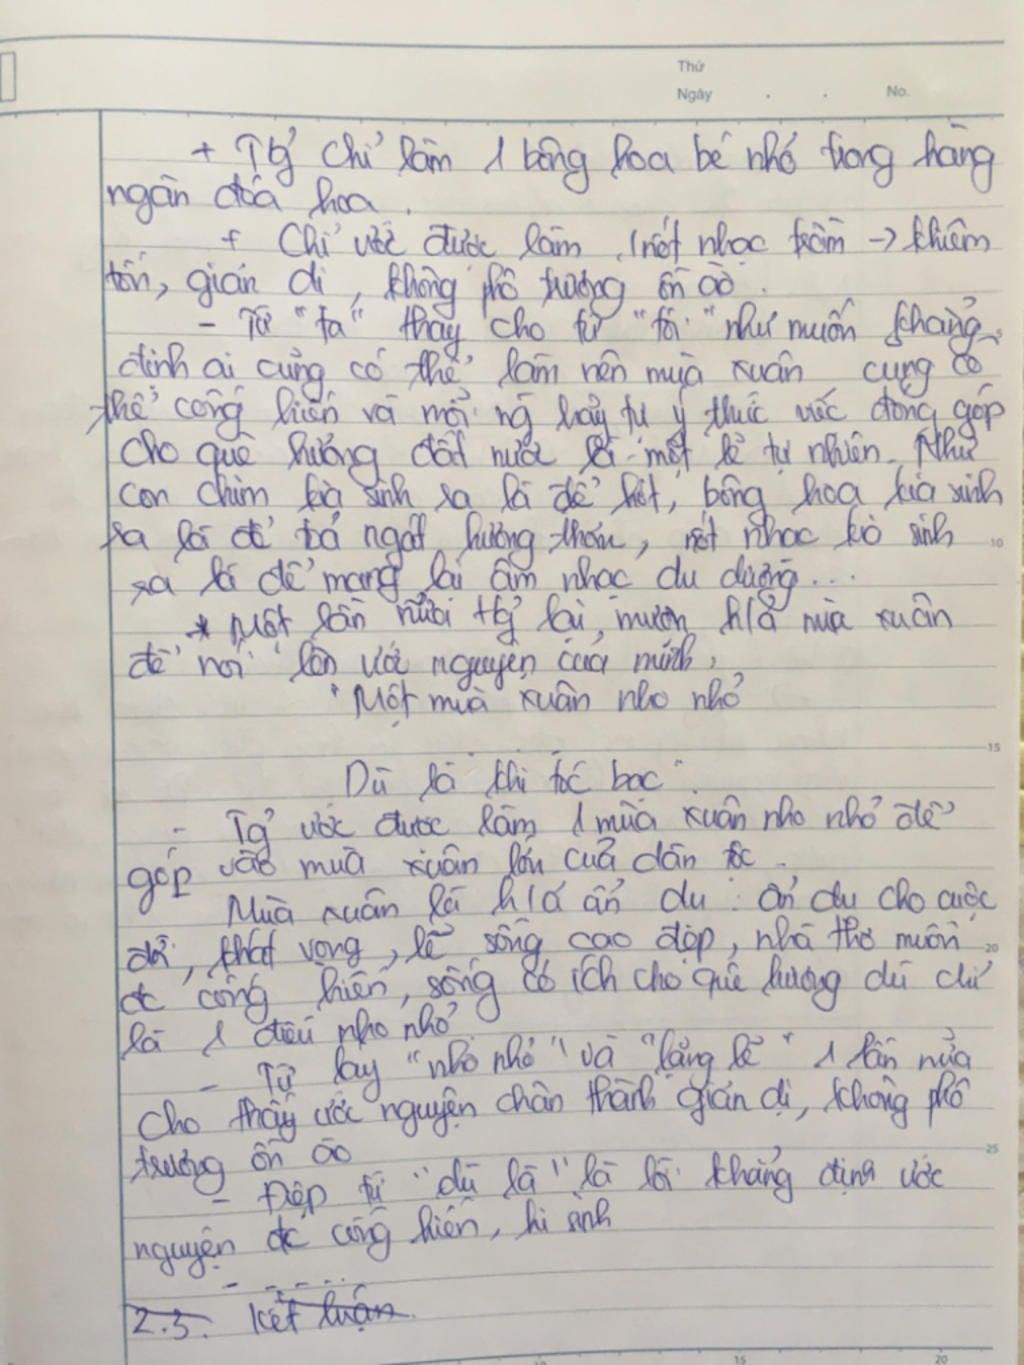 Thứ
Ngày . . No.
+ Tg chỉ làm 1 bông hoa bé nhỏ trong hàng
ngàn đóa hoa.
+ Chỉ ước được làm 1 nốt nhạc trầm → khiêm
tốn, giản dị, không phô trương ồn ào.
- Từ "ta" thay cho từ "tôi" như muốn khẳng
định ai cũng có thể làm nên mùa xuân cũng có
thể cống hiến và mỗi ng hãy tự ý thức việc đóng góp
cho quê hương đất nước là một lẽ tự nhiên. Như
con chim kia sinh ra là để hót, bông hoa kia sinh
ra là để tỏa ngát hương thơm, nốt nhạc kia sinh
ra là để mang lại âm nhạc du dương...
* Một lần nữa tg lại mượn h/ả mùa xuân
để nói lên ước nguyện của mình,
"Một mùa xuân nho nhỏ
Dù là khi tóc bạc".
- Tg ước được làm 1 mùa xuân nho nhỏ để
góp vào mùa xuân lớn của dân tộc.
Mùa xuân là h/ả ẩn dụ: ẩn dụ cho cuộc
đời, khát vọng, lẽ sống cao đẹp, nhà thơ muốn
đc cống hiến, sống có ích cho quê hương dù chỉ
là 1 điều nho nhỏ
- Từ láy "nho nhỏ" và "lặng lẽ" 1 lần nữa
cho thấy ước nguyện chân thành giản dị, không phô
trương ồn ào
- Điệp từ "dù là" là lời khẳng định ước
nguyện đc cống hiến, hi sinh
- .....
2.3. Kết luận.
10
15
20
25
15
20